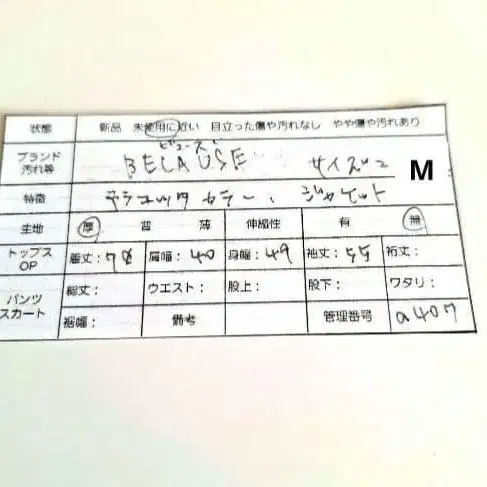 状態 新品 未使用に近い 目立った傷や汚れなし やや傷や汚れあり
ブランド 汚れ等 BECAUSE サイズ2 M
特徴 テラコッタカラー、ジャケット
生地 厚 普 薄 伸縮性 有 無
トップス OP 着丈：78 肩幅：40 身幅：49 袖丈：55 裄丈：
パンツ スカート 総丈： ウエスト： 股上： 股下： ワタリ：
裾幅： 備考 管理番号 a407